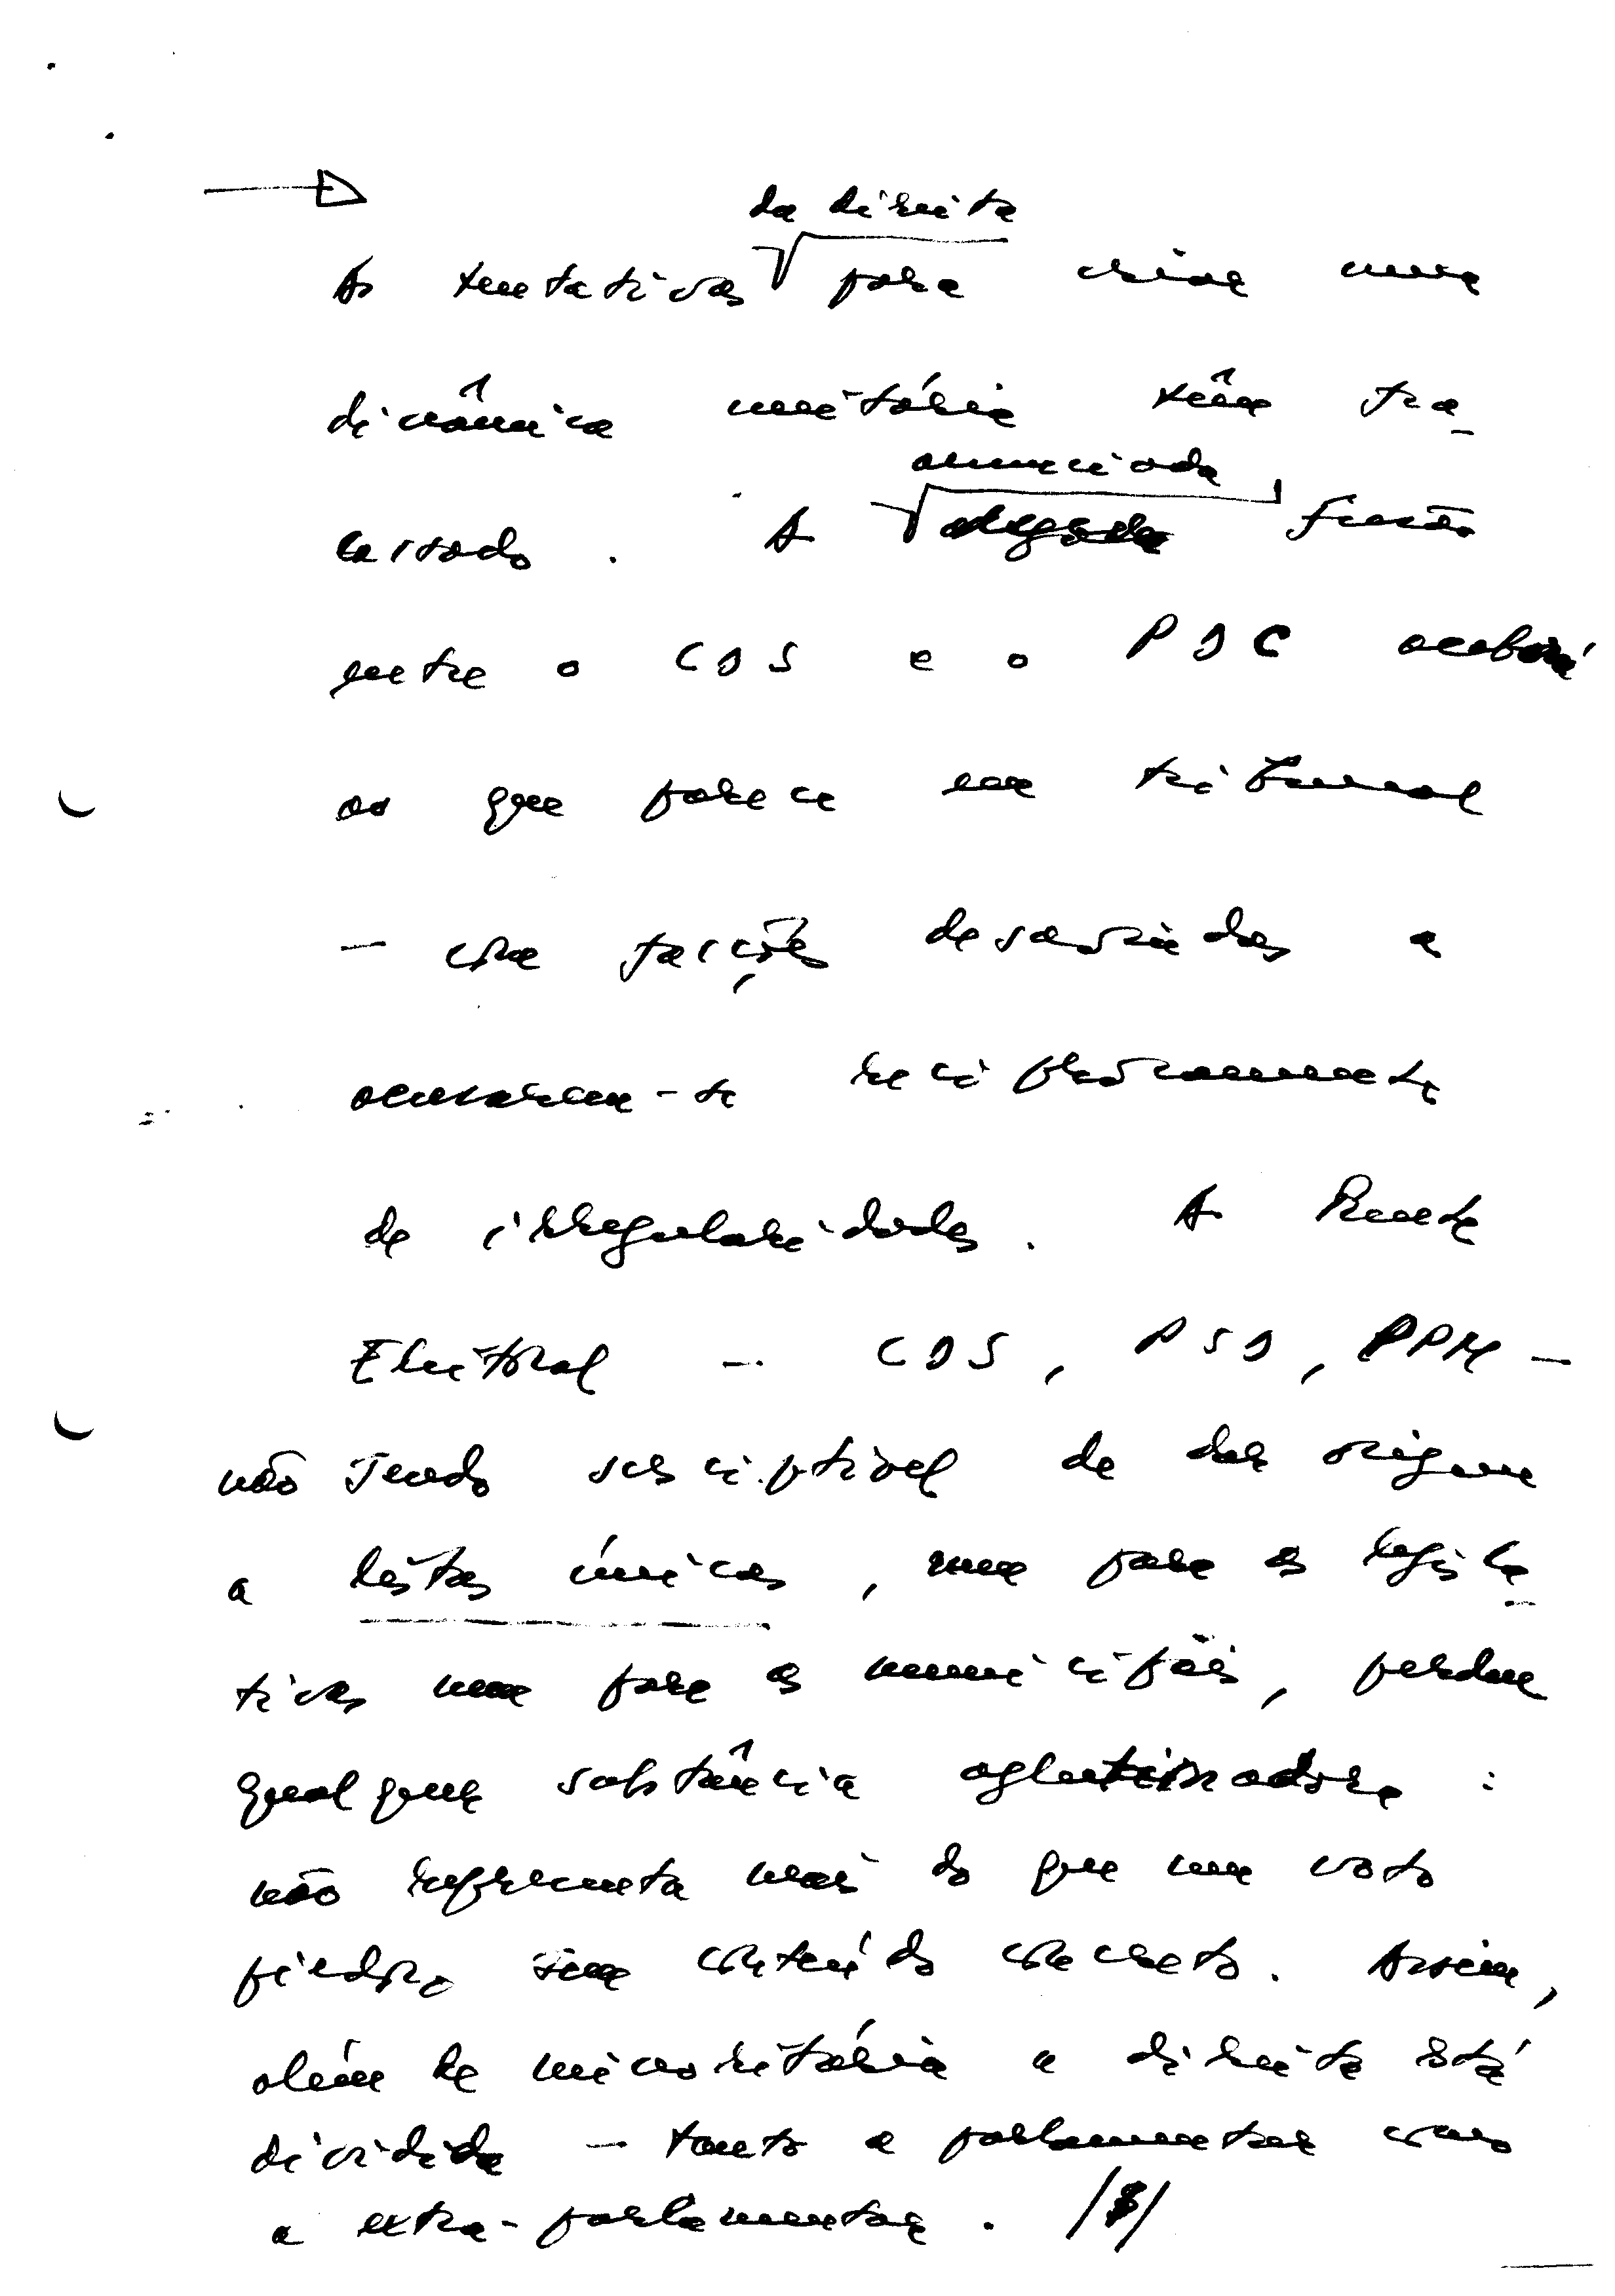 da direita
As tentativas para criar uma
dinâmica unitária têm fra-
cassado. A anunciada fusão
entre o CDS e o PDC acabará
ao que parece em tribunal
- com facções desavindas a
acusarem-se reciprocamente
de irregularidades. A Frente
Eleitoral - CDS, PSD, PPM -
não sendo susceptível de dar origem
a listas únicas, nem para as legisla-
tivas nem para as municipais, perdem
qualquer substância aglutinadora:
não representa mais do que um voto
piedoso sem conteúdo concreto. Assim,
além de minoritária a direita está
dividida - tanto a parlamentar como
a extra-parlamentar.